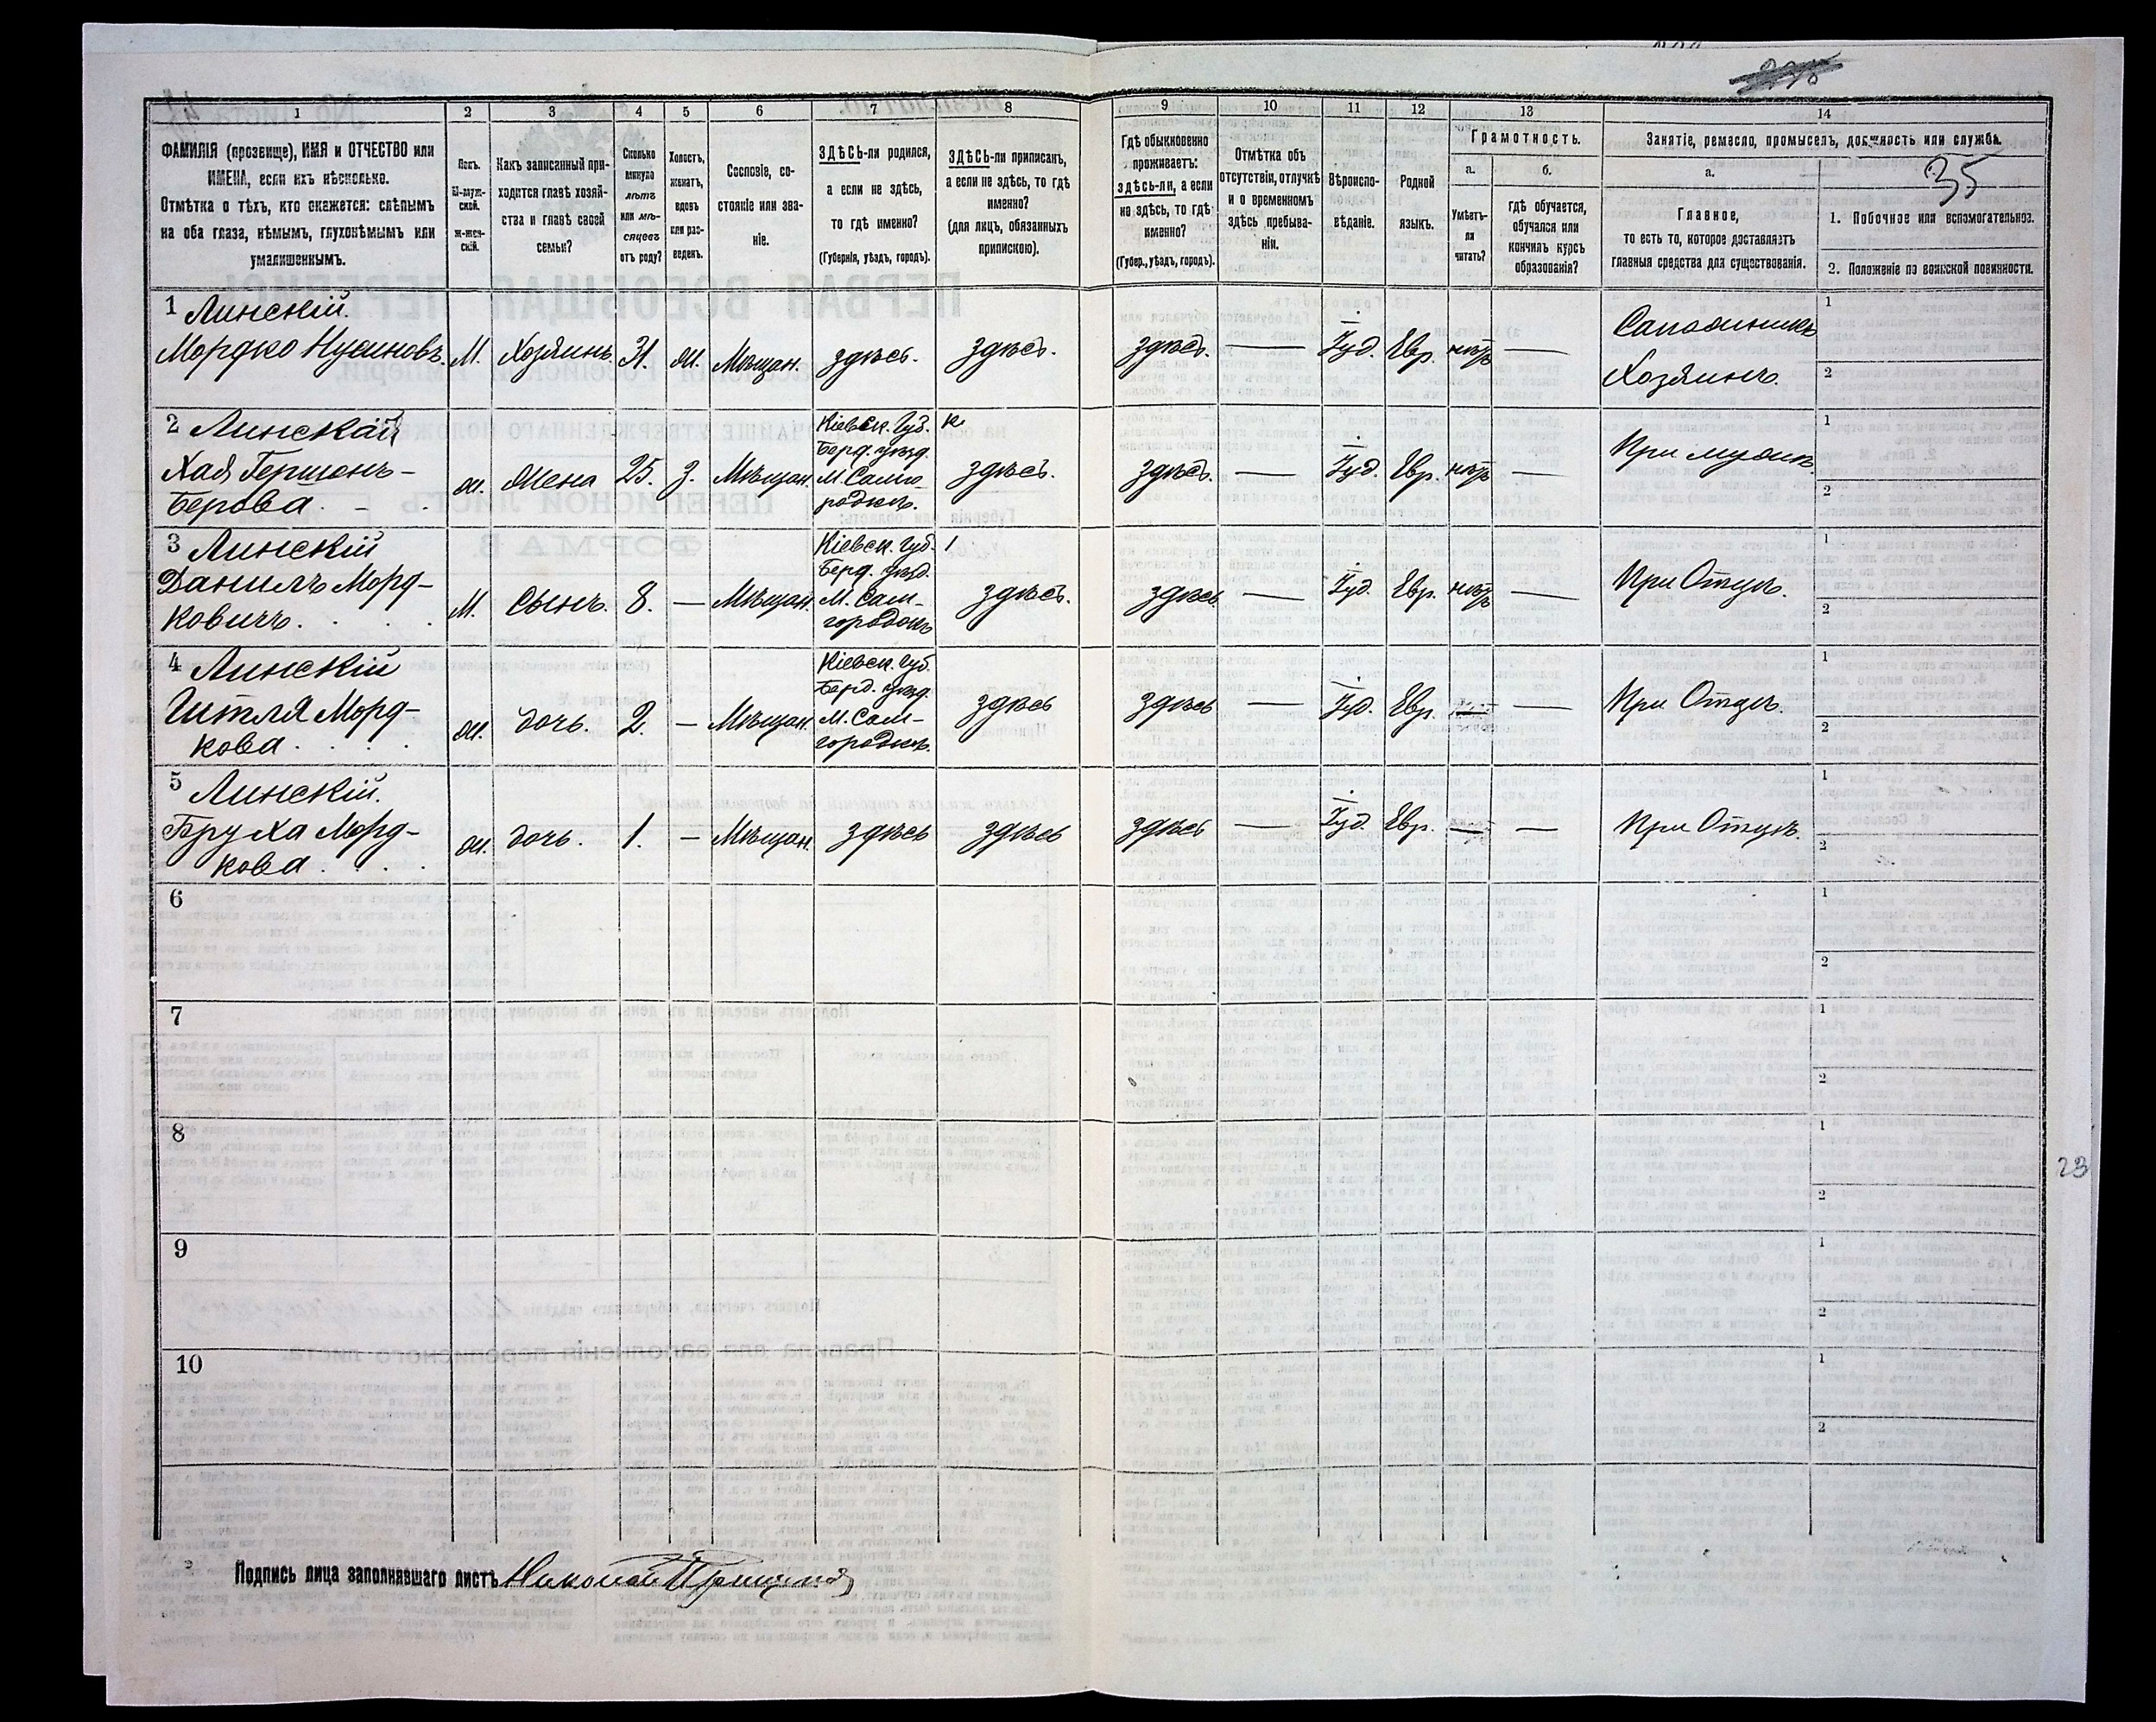 35
1
2
3
4
5
6
7
8
9
10
11
12
13
14
ФАМИЛІЯ (прозвище), ИМЯ и ОТЧЕСТВО или
ИМЕНА, если ихъ нѣсколько.
Отмѣтка о тѣхъ, кто окажется: слѣпымъ
на оба глаза, нѣмымъ, глухонѣмымъ или
умалишеннымъ.
Полъ.
М-муж-
ской.
Ж-жен-
скій.
Какъ записанный при-
ходится главѣ хозяй-
ства и главѣ своей
семьи?
Сколько
минуло
лѣтъ
или мѣ-
сяцевъ
отъ роду?
Холостъ,
женатъ,
вдовъ
или раз-
веденъ.
Сословіе, со-
стояніе или зва-
ніе.
ЗДѢСЬ-ли родился,
а если не здѣсь,
то гдѣ именно?
(Губернія, уѣздъ, городъ).
ЗДѢСЬ-ли приписанъ,
а если не здѣсь, то гдѣ
именно?
(для лицъ, обязанныхъ
припискою).
Гдѣ обыкновенно
проживаетъ:
здѣсь-ли, а если
не здѣсь, то гдѣ
именно?
(Губер., уѣздъ, городъ).
Отмѣтка объ
отсутствіи, отлучкѣ
и о временномъ
здѣсь пребыва-
ніи.
Вѣроиспо-
вѣданіе.
Родной
языкъ.
Грамотность.
а.
Умѣетъ-
ли
читать?
б.
гдѣ обучается,
обучался или
кончилъ курсъ
образованія?
Занятіе, ремесло, промыселъ, должность или служба.
а.
Главное,
то есть то, которое доставляетъ
главныя средства для существованія.
1. Побочное или вспомогательное.
2. Положеніе по воинской повинности.
1 Линскій.
Мордко Нусиновъ. М. Хозяинъ. 31. ж. Мѣщан. здѣсь. здѣсь. здѣсь. — Іуд. Евр. нѣтъ —
Сапожникъ
Хозяинъ.
1
2
2 Линская
Хая Гершонъ-
Берова. ж. Жена 25. з. Мѣщан.
Кіевск. Губ.
Берд. уѣзд.
здѣсь. здѣсь. — Іуд. Евр. нѣтъ —
При мужѣ.
1
2
3 Линскій
Данилъ Морд-
ковичъ. М. Сынъ. 8. — Мѣщан.
Кіевск. Губ.
Берд. уѣзд.
М. Сам-
городокъ
здѣсь. здѣсь — Іуд. Евр. нѣтъ —
При Отцѣ.
1
2
4 Линскій
Гитля Морд-
кова. ж. дочь. 2. — Мѣщан.
Кіевск. Губ.
Берд. уѣзд.
М. Сам-
городкѣ.
здѣсь здѣсь — Іуд. Евр. — —
При Отцѣ.
1
2
5 Линскій.
Бруха Морд-
кова. ж. дочь. 1. — Мѣщан. здѣсь здѣсь здѣсь — Іуд. Евр. — —
При Отцѣ.
1
2
6
1
2
7
1
2
8
1
2
23
9
1
2
10
1
2
Подпись лица заполнявшаго листъ Николай